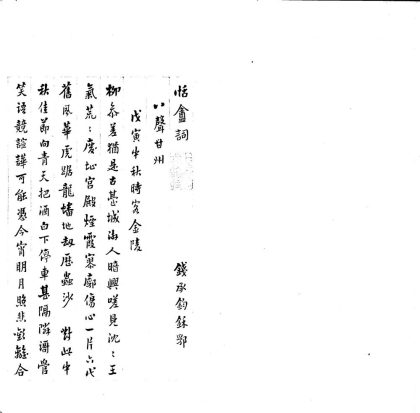 恬盦詞
錢承鈞銖鄂
八聲甘州
戊寅中秋時客金陵
柳參差猶是古臺城游人暗興嗟見沈〻王
氣荒〻廢址宮殿煙霞寥廓傷心一片六代
舊風華虎踞龍蟠地劫歷蟲沙 對此中
秋佳節向青天把酒白下停車甚隔隣酒管
笑語競諠譁可能憑今宵明月照悲歡離合